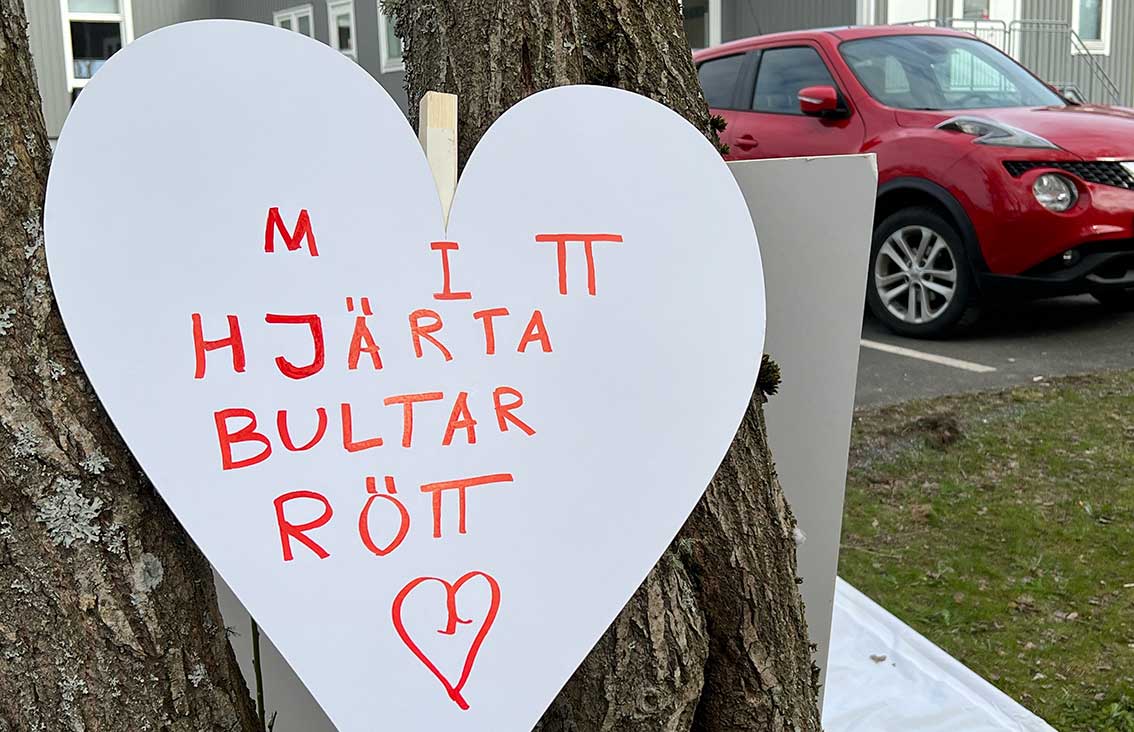 MITT
HJÄRTA
BULTAR
RÖTT